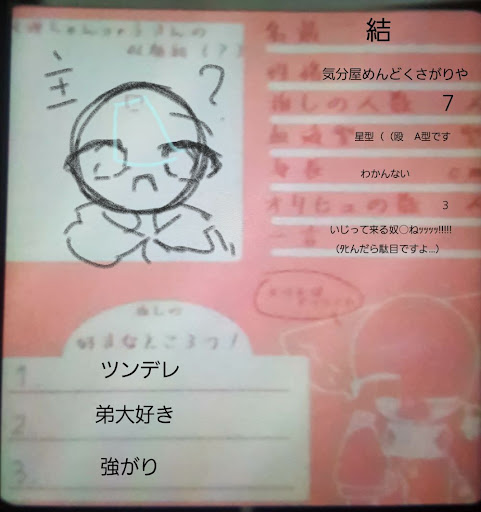 主
?
名前 結
性格 気分屋めんどくさがりや
推しの人数 7 人
血液型 星型（（殴　A型です
身長 わかんない cm
オリヒュの数 3 人
一言 いじって来る奴○ねｯｯｯｯ!!!!!
（ﾀﾋんだら駄目ですよ...）
推しの
好きなところっ！
1. ツンデレ
2. 弟大好き
3. 強がり